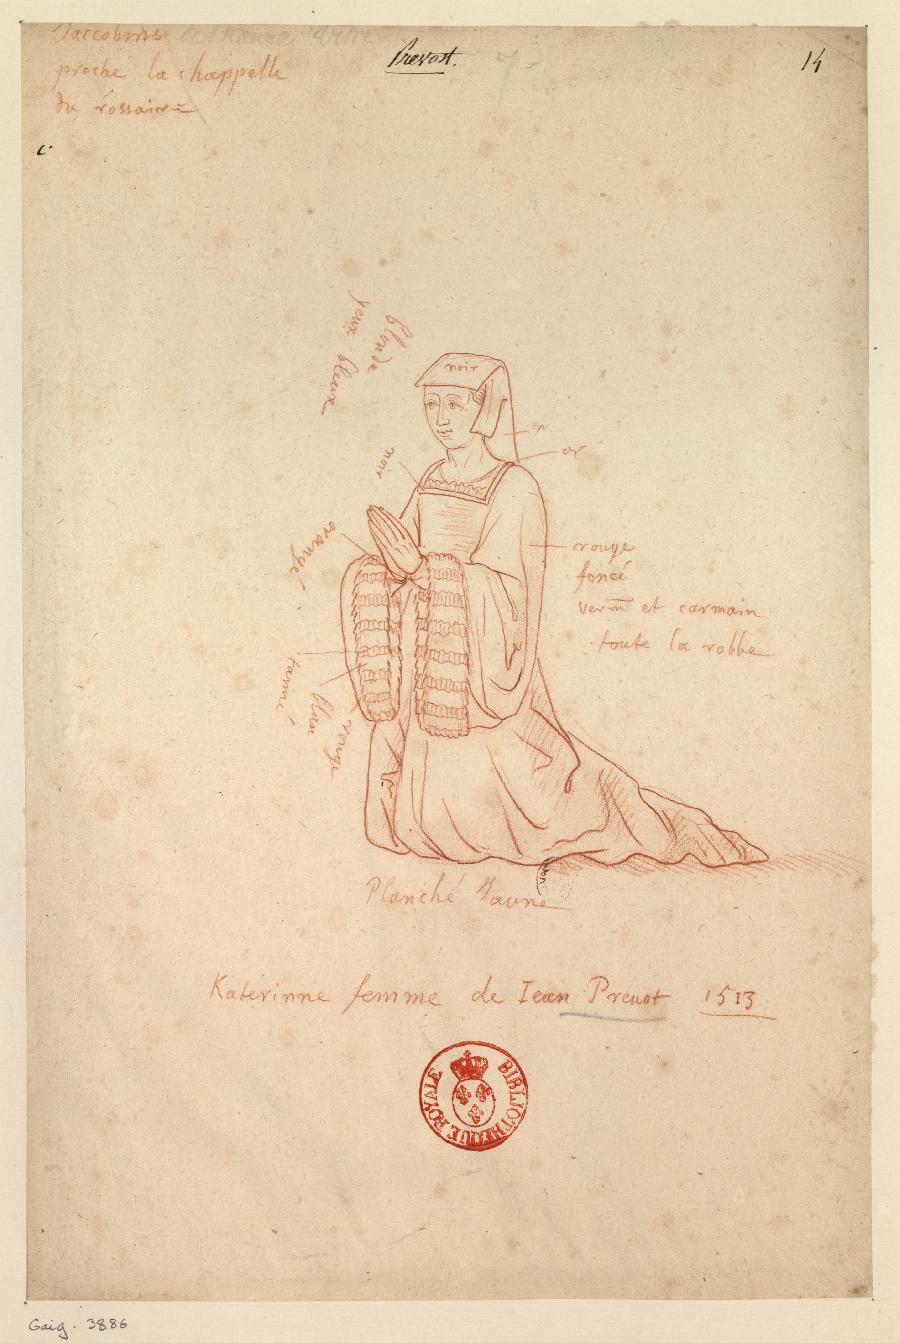 Jaccobins
proche la chappelle
du rossaire
Prevost.
14
blonde
yeux bleux
noir
or
or
noir
orangé
rouge
foncé
verm̄ et carmain
toute la robbe
tanné
bleu
rouge
Planché Jaune
Katerinne femme de Iean Preuot 1513
BIBLIOTHEQUE ROYALE
Gaig. 3886